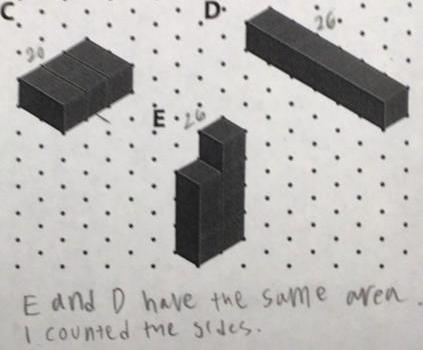 C
D
20
26
E
26
E and D have the same area.
I counted the sides.